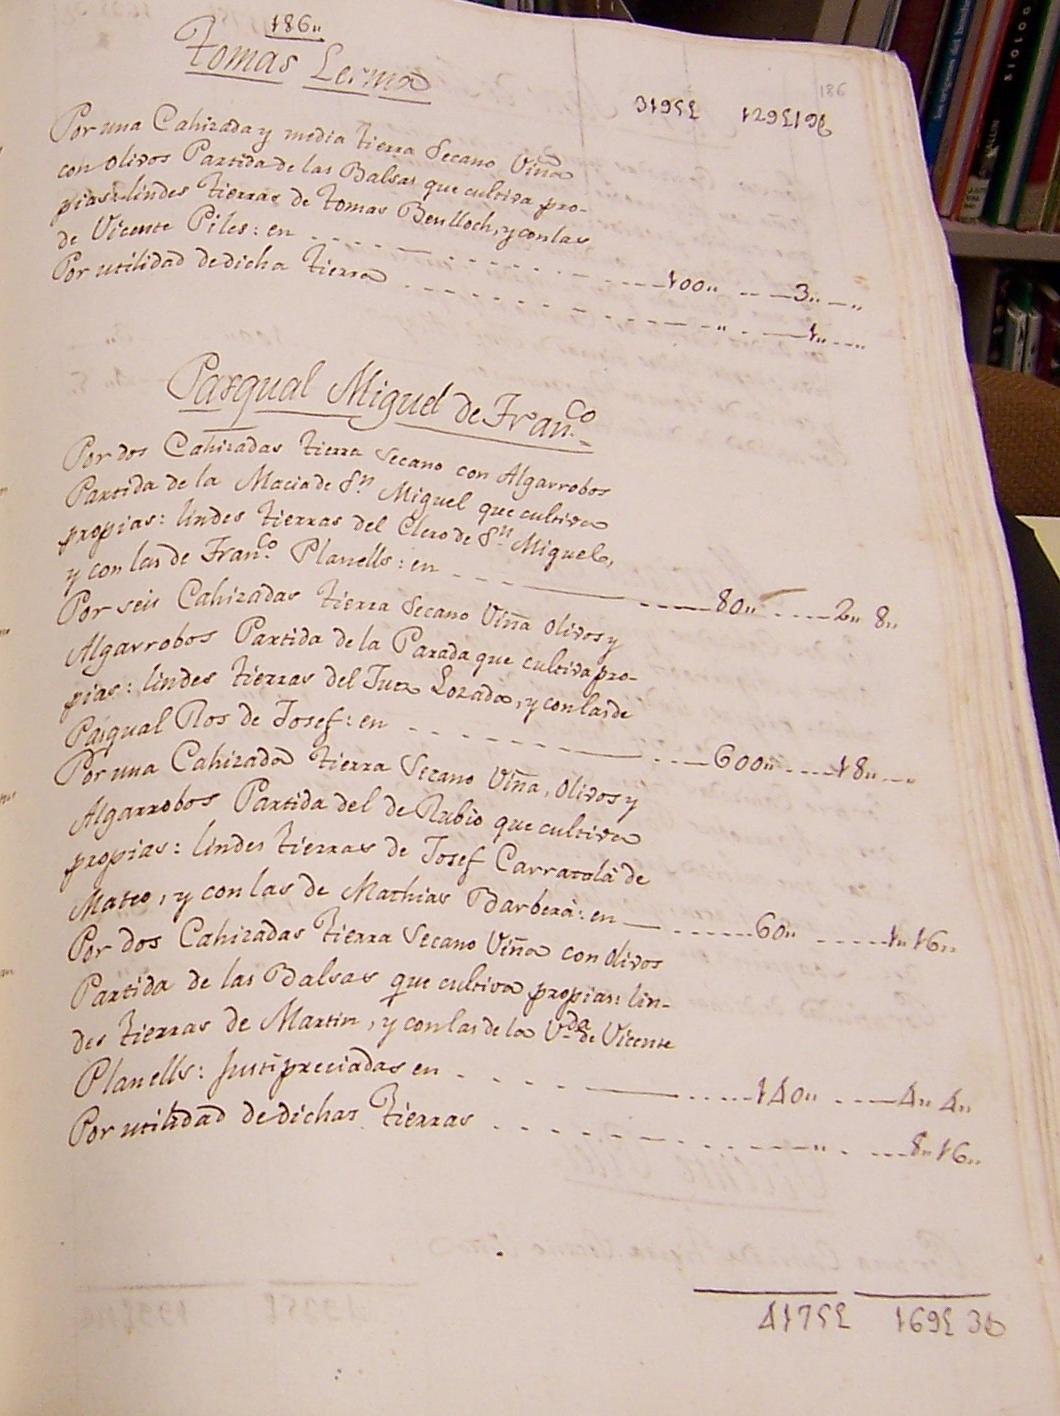 186,,
186
Tomas Lerma
3195£ 129£1396
Por una Cahizada y media tierra Secano Viña
con olivos Partida de las Balsas que cultiva pro-
pias: lindes tierras de Tomas Benlloch, y con las
de Vicente Piles: en 100,, 3,,
Por utilidad de dicha tierra ,, 1,,
Pasqual Miguel de Fran.co
Por dos Cahizadas tierra Secano con Algarrobos
Partida de la Macia de S.n Miguel que cultiva
propias: lindes tierras del Clero de S.n Miguel,
y con las de Fran.co Planells: en 80,, 2,, 8,,
Por seis Cahizadas tierra Secano Viña olivos y
Algarrobos Partida de la Parada que cultiva pro-
pias: lindes tierras del Lozada, y con las de
Pasqual Ros de Josef: en 600,, 18,,
Por una Cahizada tierra Secano Viña, olivos y
Algarrobos Partida del de Rubio que cultiva
propias: lindes tierras de Josef Carratalá de
Mateo, y con las de Mathias Barberá: en 60,, 1,, 16,,
Por dos Cahizadas tierra Secano Viña con olivos
Partida de las Balsas que cultiva propias: lin-
des tierras de Martin, y con las de la V.da de Vicente
Planells: Justipreciadas en 140,, 4,, 4,,
Por utilidad de dichas tierras ,, 8,, 16,,